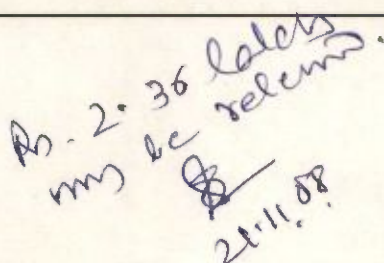 Rs. 2.36 lakhs
may be released.
21.11.08